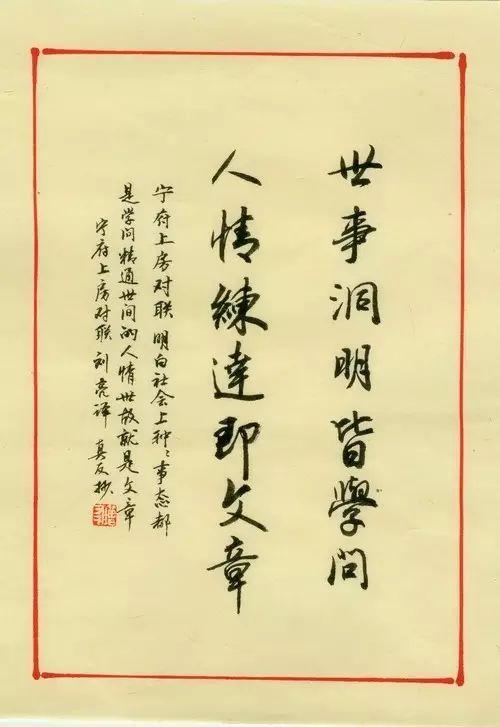 世事洞明皆學問
人情練達即文章
宁府上房对联 明白社会上种〻事态都
是学问精通世间的人情世故就是文章
宁府上房对联 刘亮译 真反抄